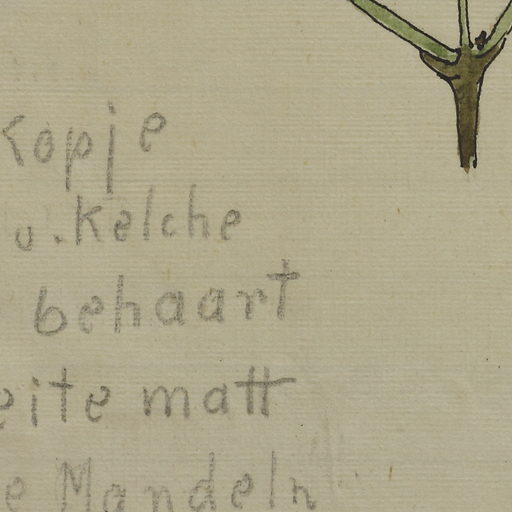 Kopje
u. Kelche
behaart
eite matt
e Mandeln